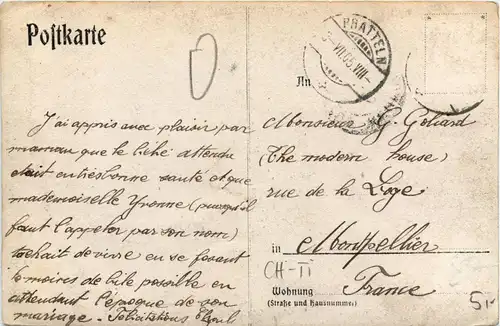 Postkarte
PRATTELN
VII.05.VIII
An
J'ai appris avec plaisir par
maman que le bébé attendu
était en très bonne santé et que
mademoiselle Yvonne (puisqu'il
faut l'appeler par son nom)
tachait de vivre en se faisant
le moins de bile possible en
attendant l'époque de son
mariage. Félicitations
Monsieur G.
(The modern house)
rue de la Loge
in Montpellier
CH-II
Wohnung France
(Straße und Hausnummer)
5.-